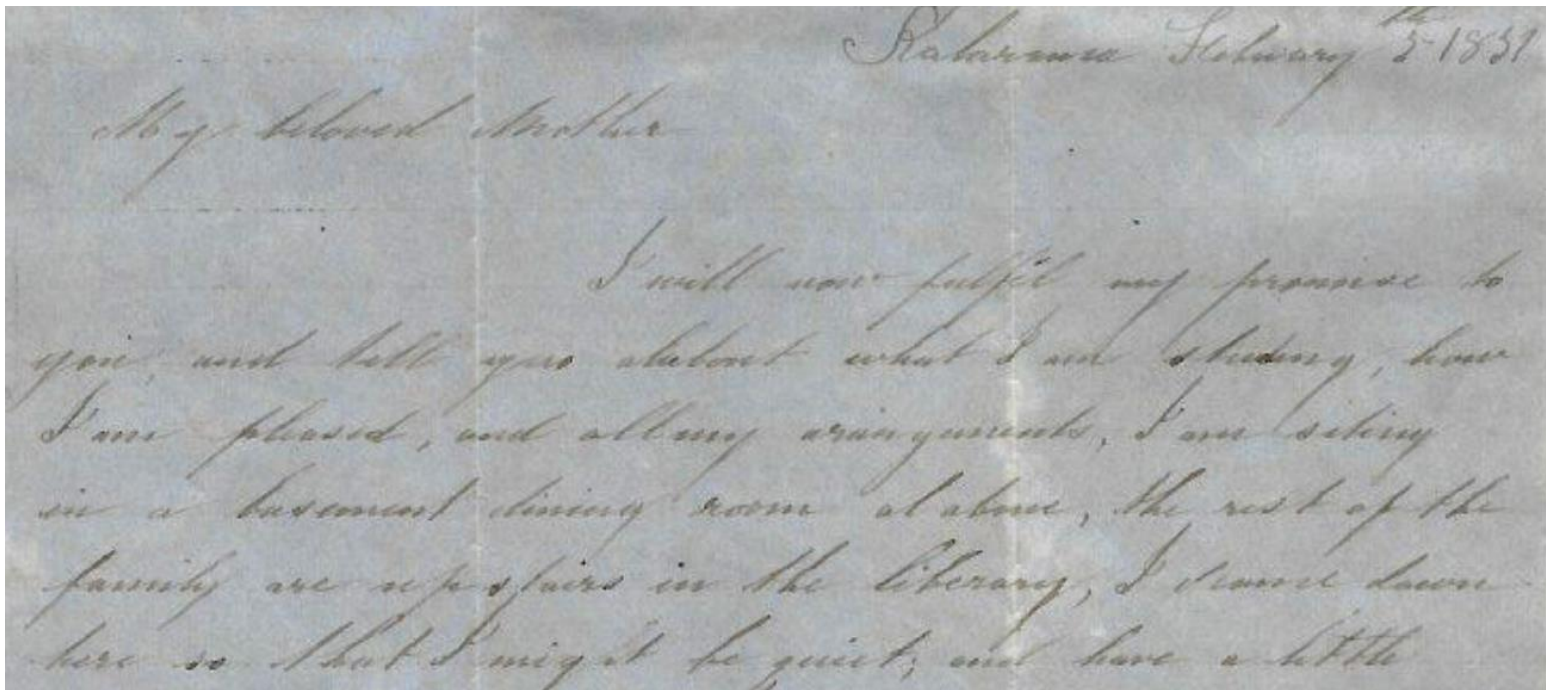 Febuary 5th 1851
My beloved Mother
I will now fulfil my promise to
you, and tell you about what I am studing, how
I am pleased, and all my arangements, I am siting
in a basement dining room al alone, the rest of the
family are up stairs in the liberary, I came down
here so that I might be quiet, and have a little